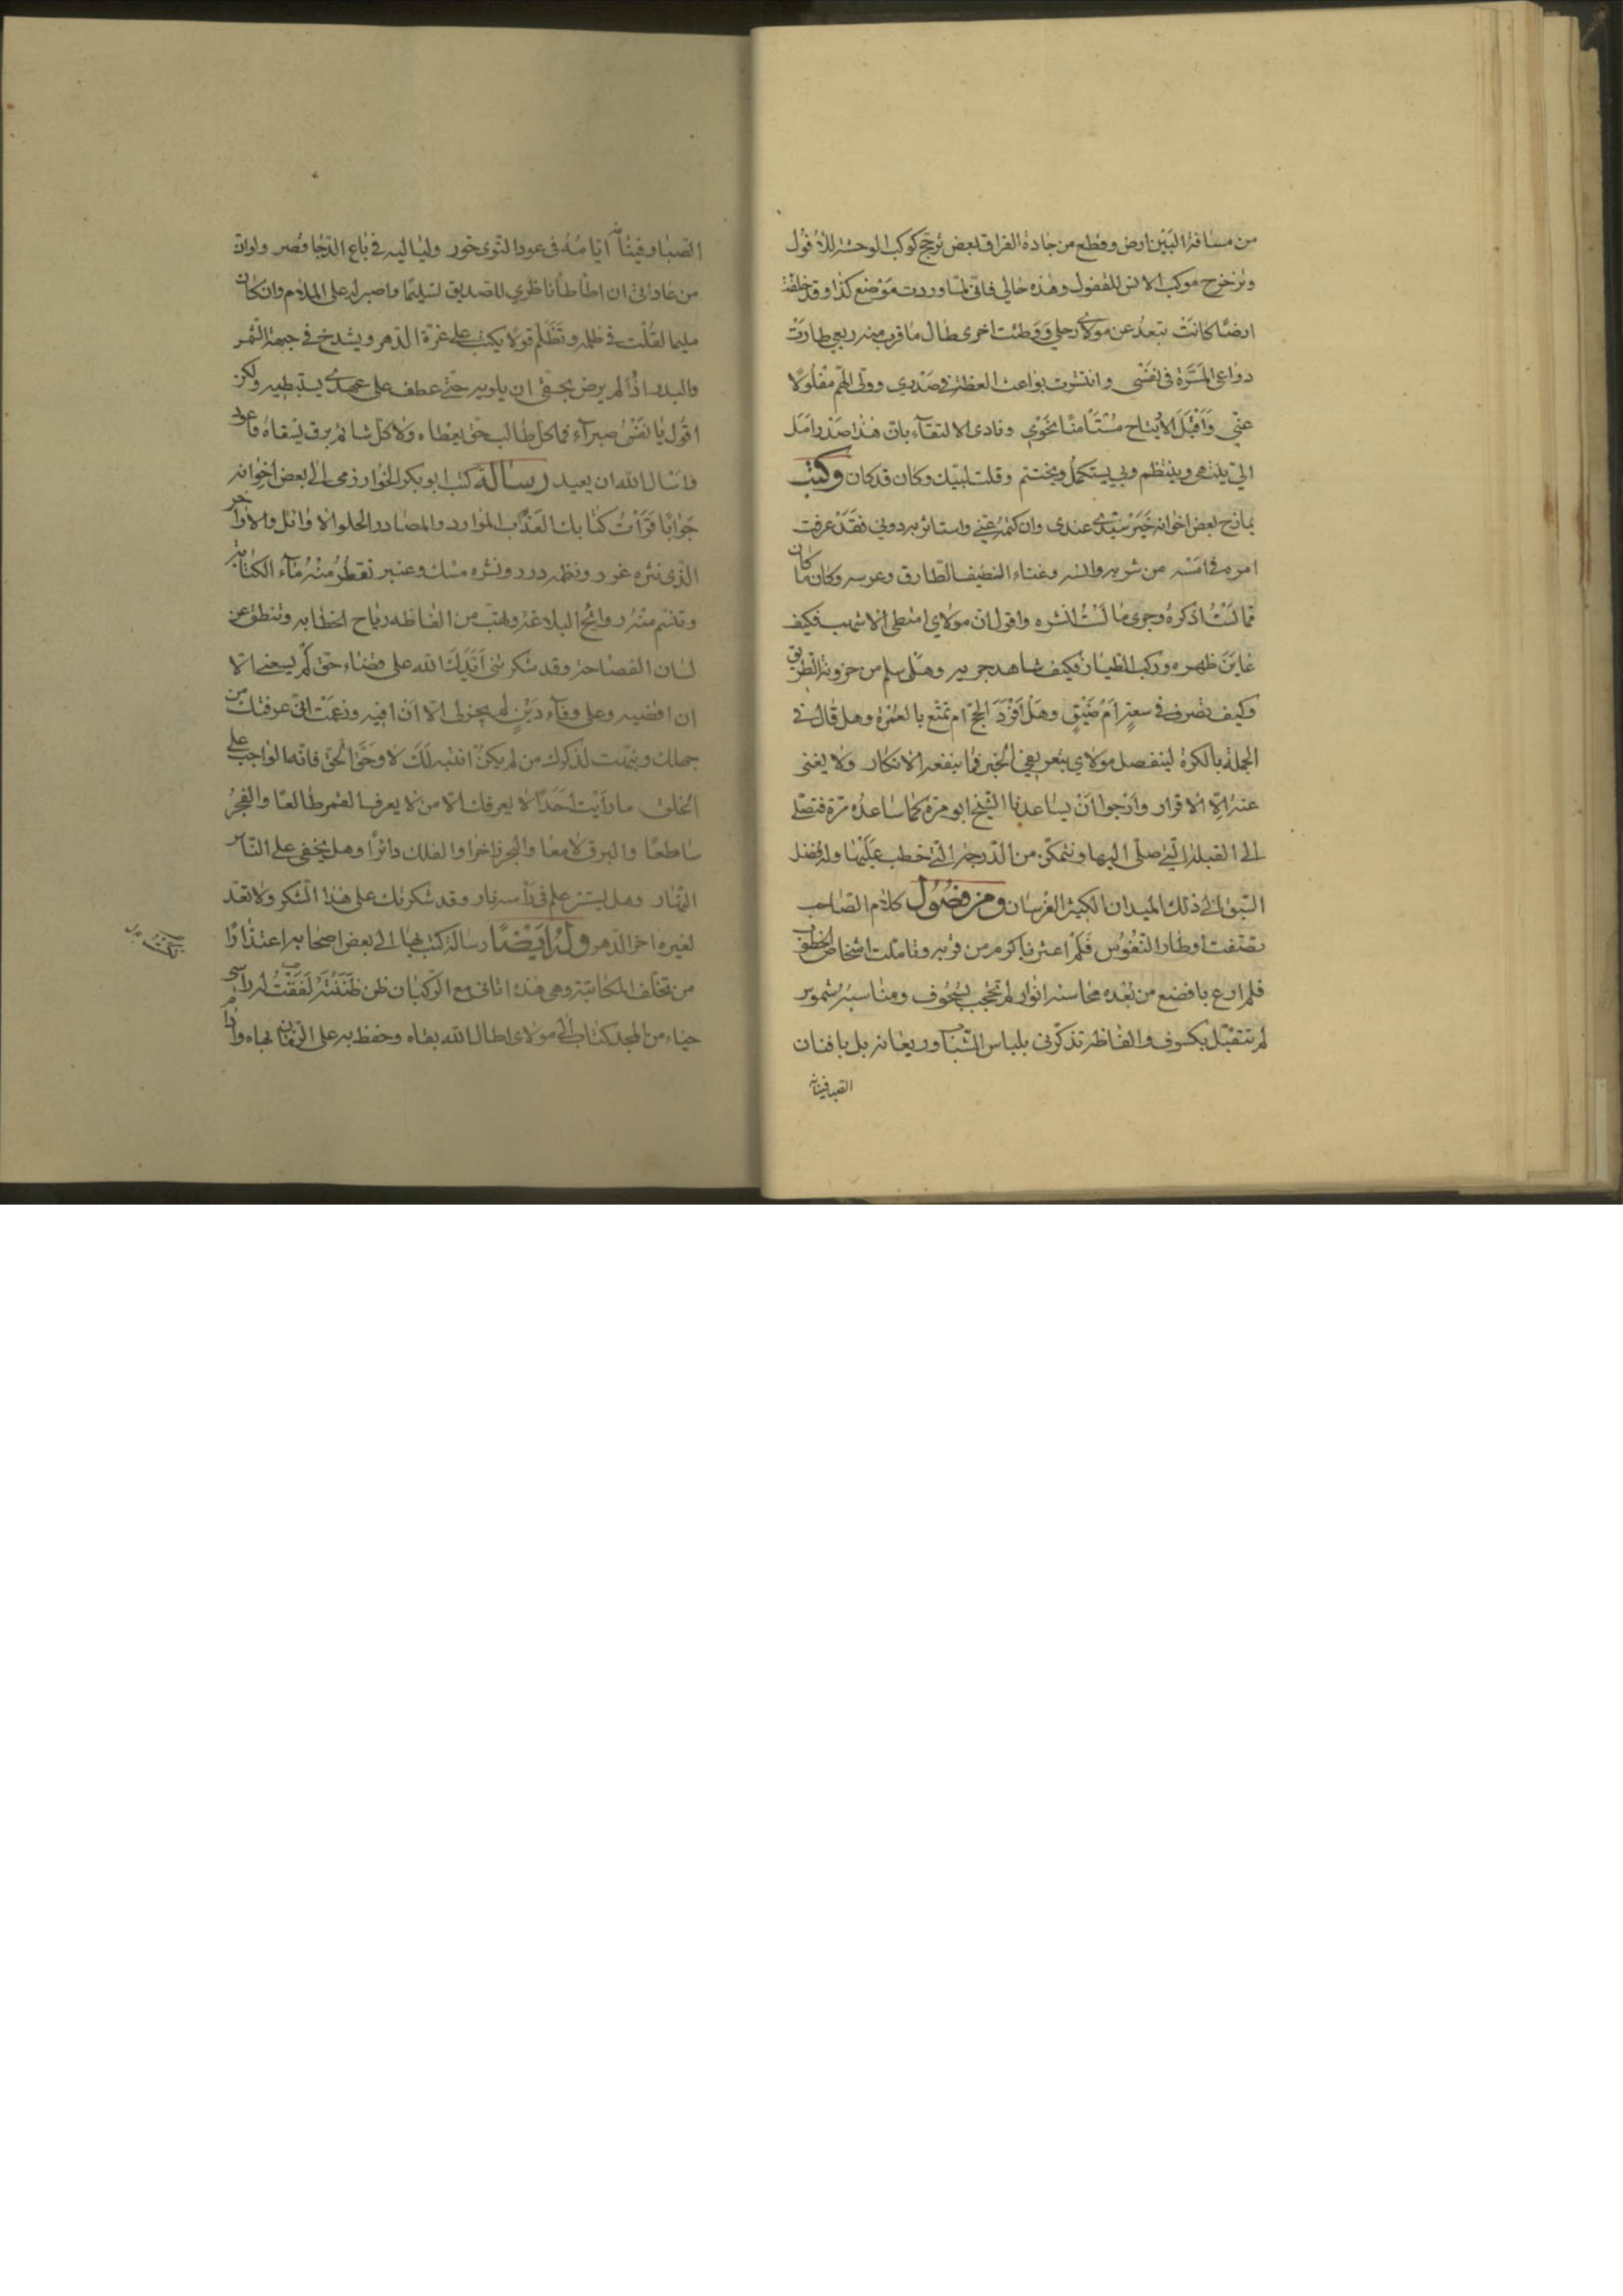 من مسافة البين ارض وقطع من جادة الفراق بعض ترجح كوكب الوحشة للأفول
وتزحزح موكب الانس للقفول وهذه حالي فاني لما وردت موضع كذا وقد خلفت
ارضا كانت تبعد عن مولاي رحلي ووطئت اخرى طال ما قرب منه ربعي طارت
دواعي المسرة في نفسي وانتشرت بواعث العظة في صدري وولى الهم مفلولا
عني واقبل الارتياح مستأمنا نحوي ونادى الالتقاء بان هذا صدر امل
الي ينتهي وينتظم وبي يستكمل ويختتم وقلت لبيك وكان قد كان وكتب
يمازح بعض اخوانه خبر سيدي عندي وان كتمه عني واستأثر به دوني فقد عرفت
امره في امسه من شربه وانسه وغناء الضيف الطارق وعرسه وكان ما كان
مما لست اذكره وجرى ما لست انشره واقول ان مولاي امتطى الاشهب فكيف
عاين ظهره وركب الطيار فكيف شاهد جريه وهل سلم من حزونة الطريق
وكيف تصرف في سعة ام ضيق وهل افرد الحج ام تمتع بالعمرة وهل قال في
الحملة بالكرة ليتفضل مولاي بتعريفي الخبر فما ينفعه الانكار ولا يغني
عنه الا الاقرار وارجو ان يساعدنا الشيخ ابو مرة كما ساعده مرة فنصلي
الى القبلة التي صلى اليها ونتمكن من الدرجة التي خطب عليها وله فضل
السبق الى ذلك الميدان الكثير الفرسان ومن فصول كلام الصاحب
تصفت اوطار النفوس فلم اعثر باكرم من قربه وتأملت اشخاص الخطوب
فلم ارع بافضع من بعده محاسنه انوار لم تحجب بسجوف ومناسبه شموس
لم تتقبل بكسوف والفاظه تذكرني بلباس الشباب وريعانه بل بافنان
الصبا وفينانه
الصبا وفينانه ايامه في عود النوى خور ولياليه في باع الدجا قصر ولو ان
من عاداتي ان اطأطأ ناظري للصديق تسليما واصبر له على الملام وان كان
مليما لقلت في ظلمه وتظلم قولا يكتب على غرة الدهر ويشدخ في جبهة الشمس
والبدر اذا لم يرض بحقي ان يلويه حتى عطف على عهدي يستبطيه ولكن
اقول يا نفس صبرا فما كل طالب حق يعطاه ولا كل شائم برق يسقاه فاعود
واسأل الله ان يعيد رسالة كتب ابو بكر الخوارزمي الى بعض اخوانه
جوابا قرأت كتابك العذب الموارد والمصادر الحلو الاوائل والاواخر
الذي نثره غرر ونظمه درر ونشره مسك وعنبر تقطر منه ماء الكتابة
وتنسم منه روائح البلاغة وتهب من الفاظه رياح الخطابه وتنطق عن
لسان الفصاحة وقد شكرتني ايدك الله على قضاء حق لم يسعني الا
ان اقضيه وعلى وفاء دين لم يجز لي الا ان افيه وزعمت اني عرفتك من
جهلك ونبهت لذكرك من لم يكن انتبه لك لا وحق الحق فانه الواجب على
الخلق ما رأيت احدا لا يعرفك الا من لا يعرف القمر طالعا والفجر
ساطعا والبرق لامعا والبحر زاخرا والفلك دائرا وهل يخفى على الناس
النهار وهل يستتر علم في رأسه نار وقد شكرتك على هذا الشكر ولا تعد
لغيره اخر الدهر وله ايضا رسالة كتب بها الى بعض اصحابه اعتذارا
من تخلف المكاتبة وهي هذه اتاني مع الركبان ظن ظننته لففت له رأسي
حياء من المجد كتابي الى مولاي اطال الله بقاه وحفظ به على الزمان بهاه وانا